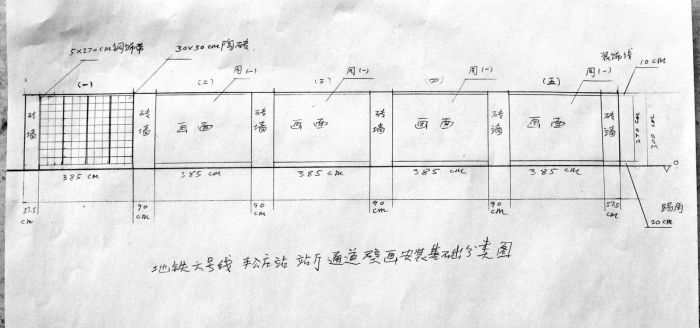 5×270cm铜饰带
30×30cm陶砖
装饰线
10cm
(一)
(二)
同(一)
(三)
同(一)
(四)
同(一)
(五)
同(一)
砖墙
砖墙
画面
砖墙
画面
砖墙
画面
砖墙
画面
砖墙
270cm
300cm
385cm
385cm
385cm
385cm
385cm
0
57.5cm
90cm
90cm
90cm
90cm
57.5cm
踢脚
20cm
地铁六号线 站 站厅通道壁画安装基础分类图